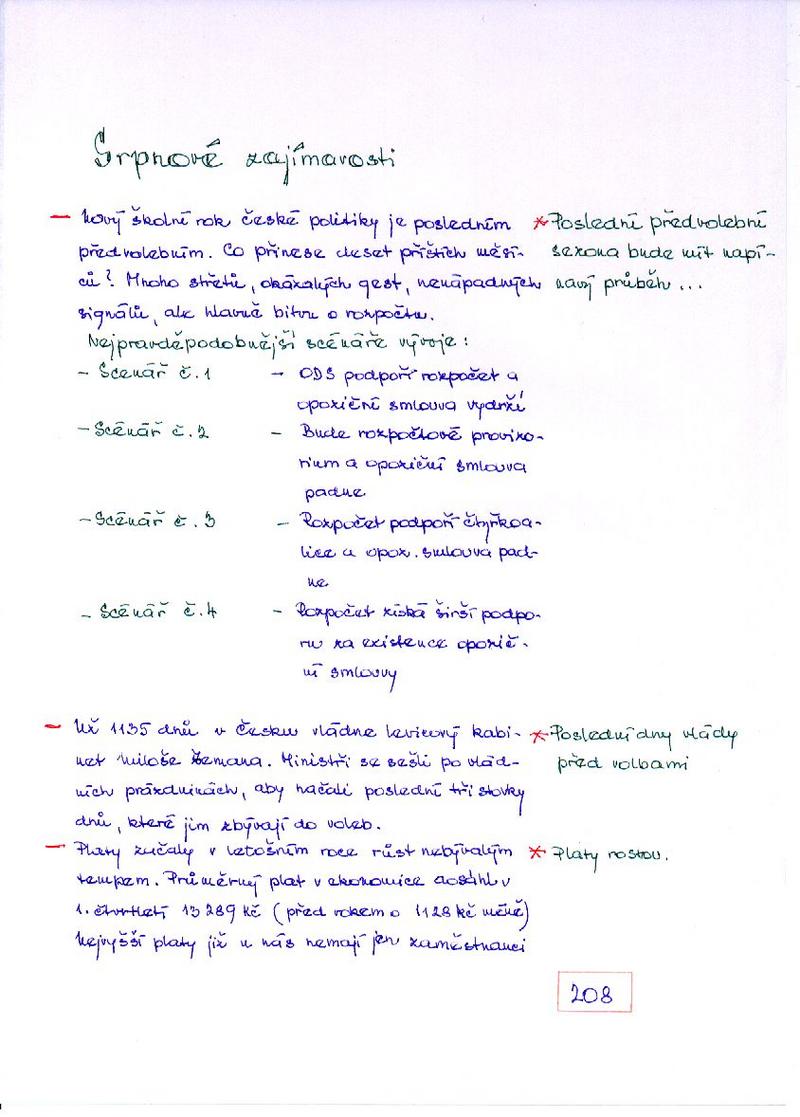 Srpnové zajímavosti
– Nový školní rok české politiky je posledním
předvolebním. Co přinese deset příštích měsí-
ců? Mnoho střetů, okázalých gest, nenápadných
signálů, ale hlavně bitvu o rozpočtu.
* Poslední předvolební
sezona bude mít napí-
navý průběh ...
Nejpravděpodobnější scénáře vývoje:
– Scénář č.1 – ODS podpoří rozpočet a
opoziční smlouva vydrží
– Scénář č.2 – Bude rozpočtové provizo-
rium a opoziční smlouva
padne
– Scénář č.3 – Rozpočet podpoří čtyřkoa-
lice a opoz. smlouva pad-
ne
– Scénář č.4 – Rozpočet získá širší podpo-
ru za existence opozič-
ní smlouvy
– Už 1135 dnů v Česku vládne levicový kabi-
net Miloše Zemana. Ministři se sešli po vlád-
ních prázdninách, aby načali poslední tři stovky
dnů, které jim zbývají do voleb.
* Poslední dny vlády
před volbami
– Platy začaly v letošním roce růst nebývalým
tempem. Průměrný plat v ekonomice dosáhl v
1. čtvrtletí 13 289 Kč (před rokem o 1128 Kč méně)
Nejvyšší platy již u nás nemají jen zaměstnanci
* Platy rostou.
208